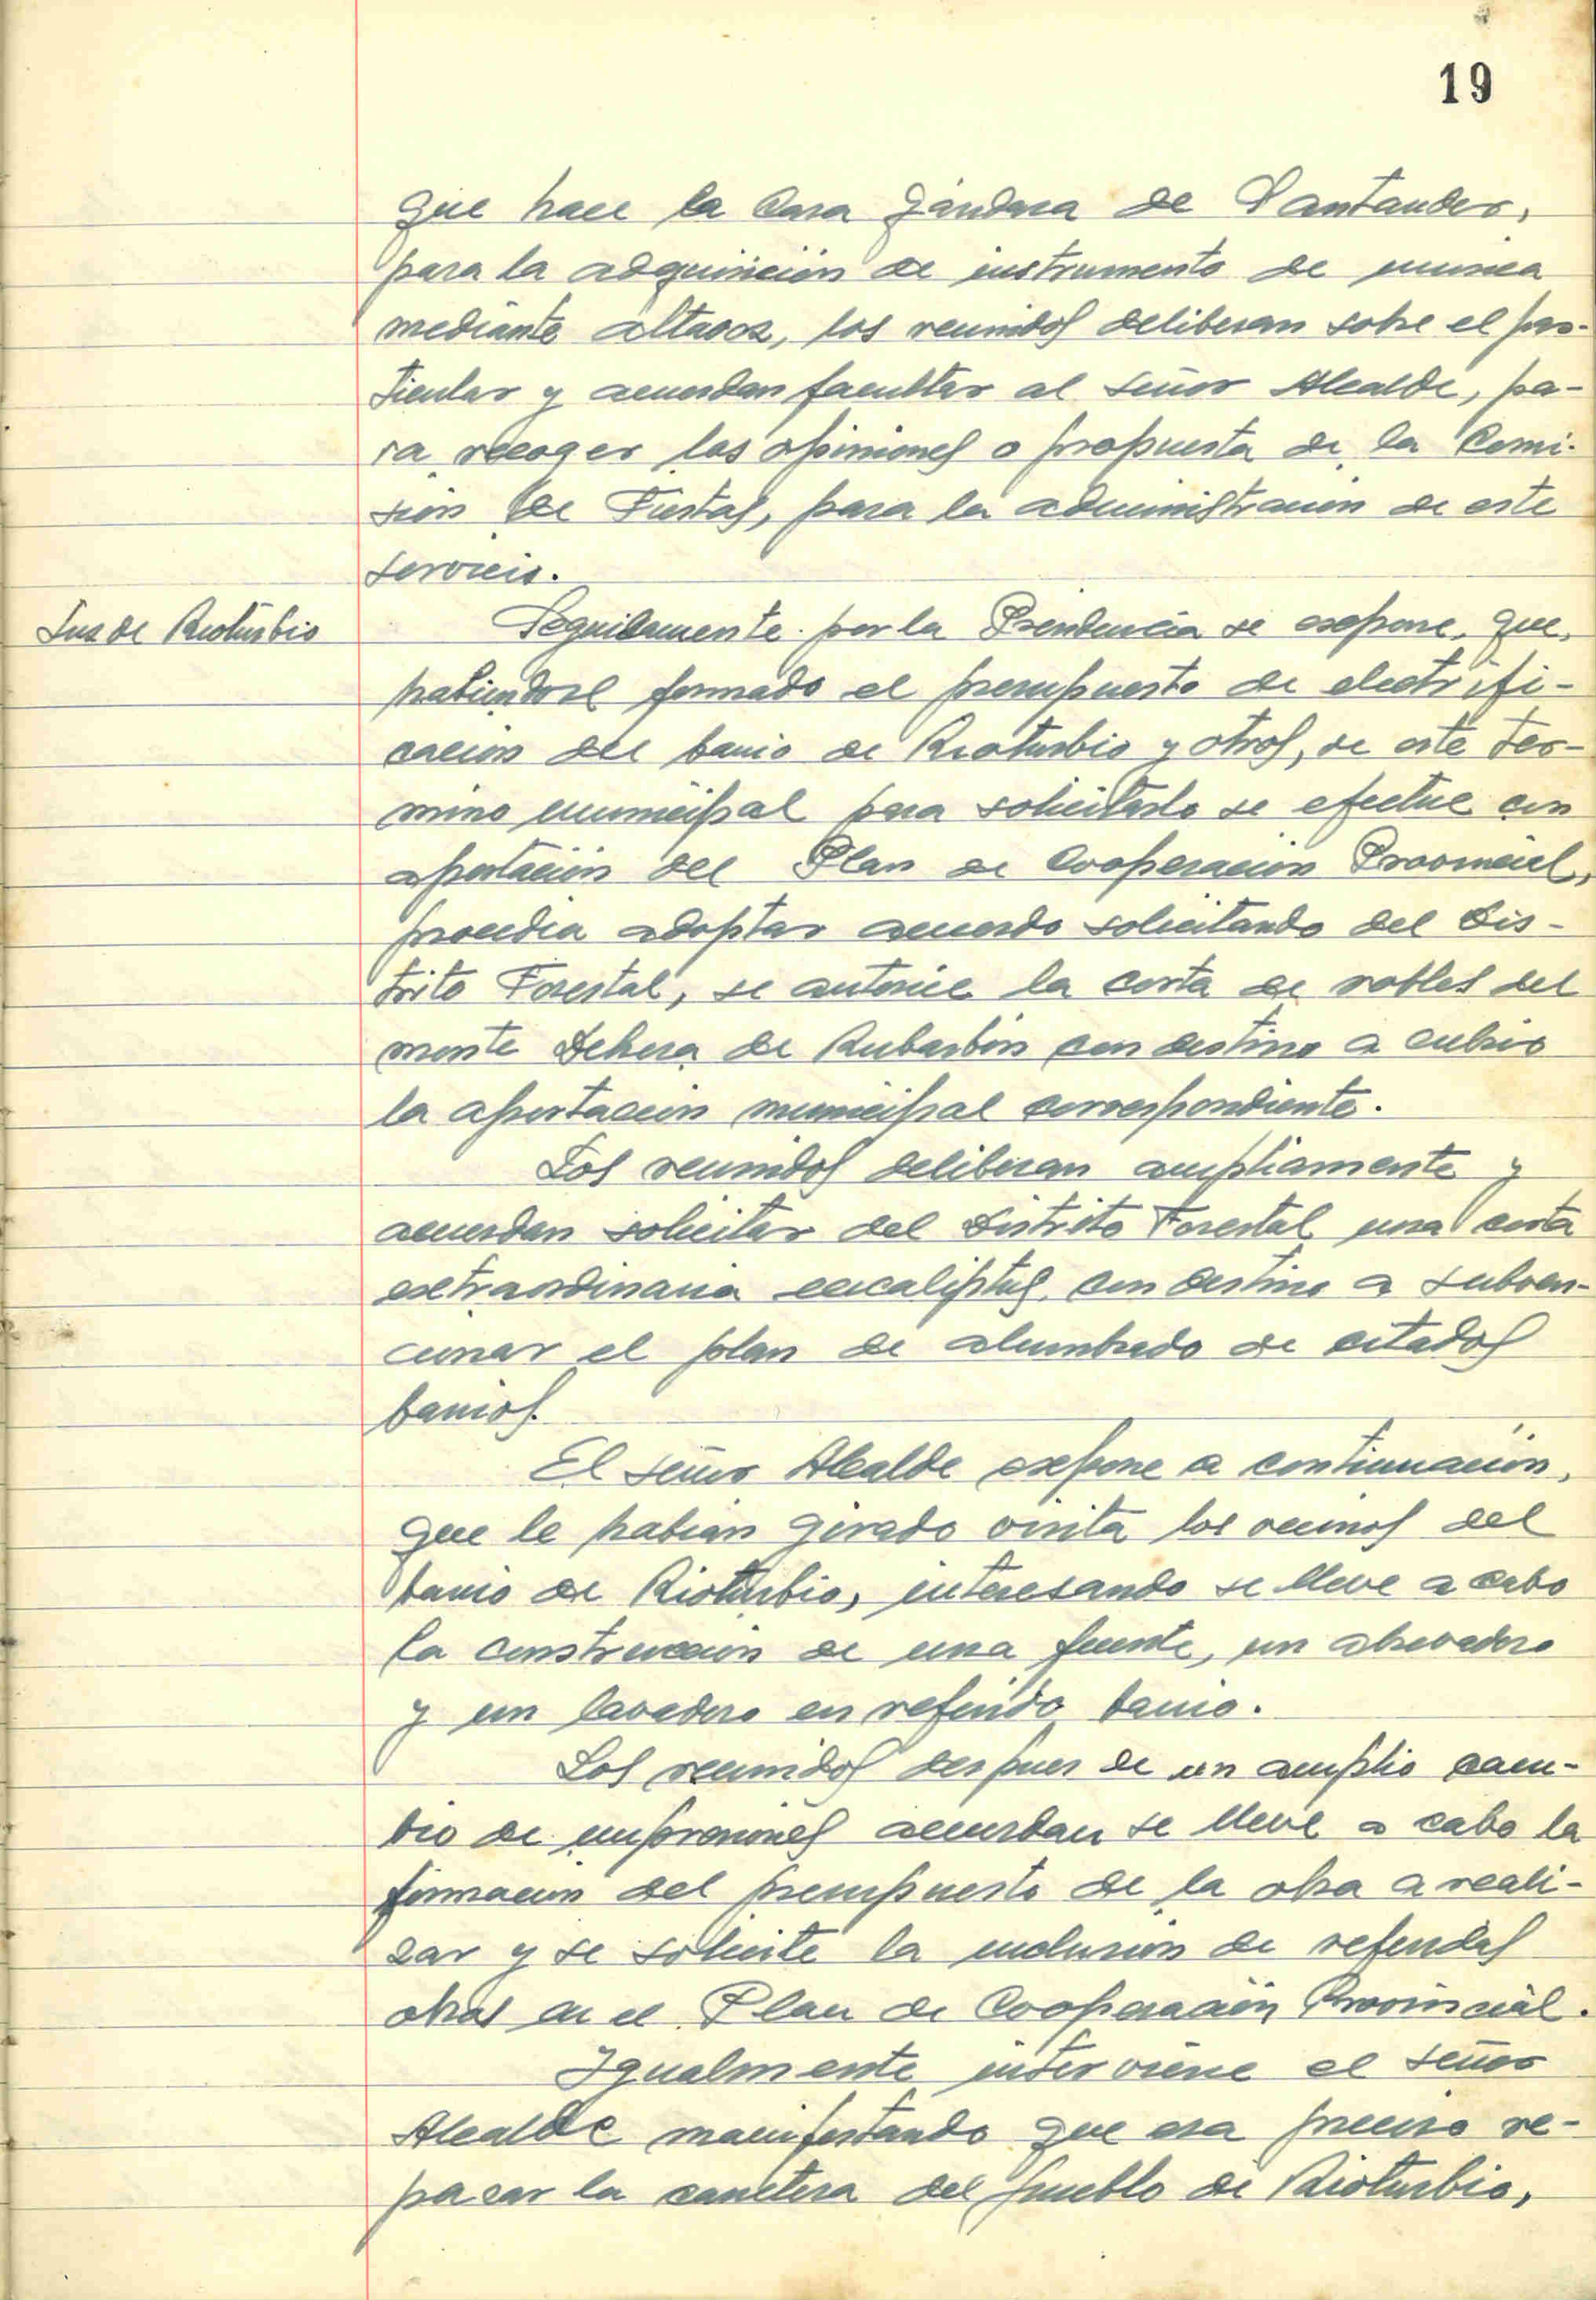 19
que hace la Casa Gándara de Santander,
para la adquisición de instrumento de musica
mediante altavoz, los reunidos deliberan sobre el par-
ticular y acuerdan facultar al señor Alcalde, pa-
ra recoger las opiniones o propuesta de la Comi-
sión de Fiestas, para la administración de este
servicio.
Luz de Rioturbio
Seguidamente por la Presidencia se expone, que,
habiendose formado el presupuesto de electrifi-
cación del barrio de Rioturbio y otros, de este ter-
mino municipal para solicitarlo se efectue con
aportación del Plan de Cooperación Provincial,
procedia adoptar acuerdo solicitando del Dis-
trito Forestal, se autorice la corta de robles del
monte Dehesa de Rubarbón con destino a cubrir
la aportación municipal correspondiente.
Los reunidos deliberan ampliamente y
acuerdan solicitar del Distrito Forestal una corta
extraordinaria eucaliptus, con destino a subven-
cionar el plan de alumbrado de citados
barrios.
El señor Alcalde expone a continuación,
que le habian girado visita los vecinos del
barrio de Rioturbio, interesando se lleve a cabo
la construcción de una fuente, un abrevadero
y un lavadero en referido barrio.
Los reunidos despues de un amplio cam-
bio de impresiones acuerdan se lleve a cabo la
formación del presupuesto de la obra a reali-
zar y se solicite la inclusión de referidas
obras en el Plan de Cooperación Provincial.
Igualmente interviene el señor
Alcalde manifestando que era preciso re-
pasar la carretera del pueblo de Rioturbio,